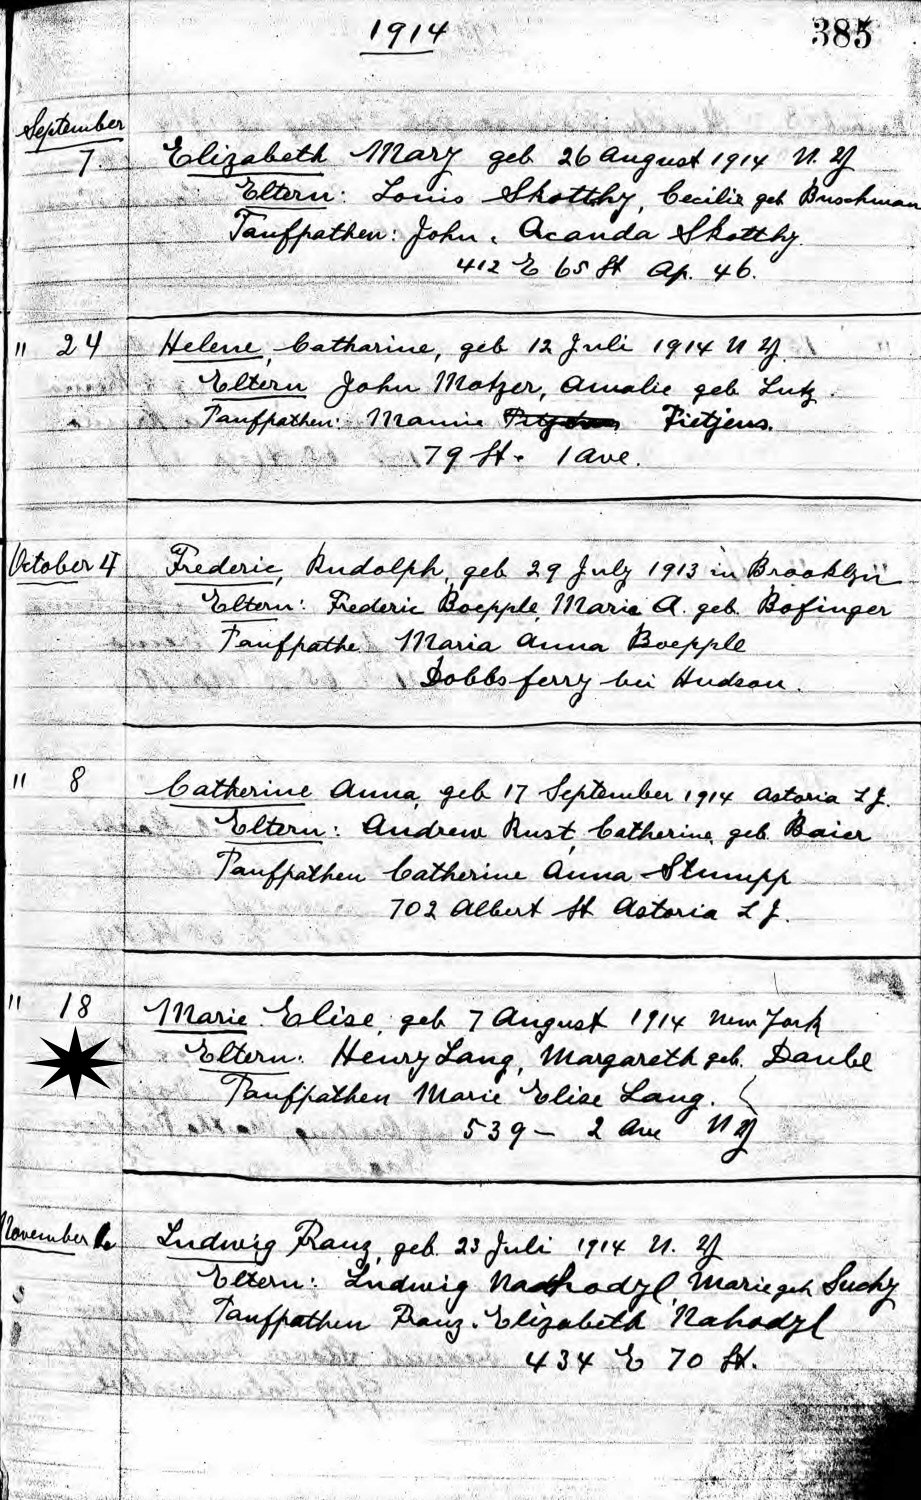 1914
385
September
7. Elizabeth Mary geb 26 August 1914 N. Y
Eltern: Louis Skotthy, Cecilie geb Buschman
Taufpathen: John, Acanda Skotthy.
412 E 65 St Ap. 46.
" 24 Helene, Catharine, geb 12 Juli 1914 N Y.
Eltern John Motzer, Amalie geb Lutz.
Taufpathen: Mamie Fietjens.
79 St. 1 Ave.
October 4 Frederic, Rudolph, geb 29 July 1913 in Brooklyn
Eltern: Frederic Boepple, Marie A. geb. Bofinger
Taufpathe Maria Anna Boepple
Dobbsferry bei Hudson.
" 8 Catherine Anna, geb 17 September 1914 Astoria L J.
Eltern: Andrew Rust, Catherine, geb. Baier
Taufpathen Catherine Anna Stumpp
702 Albert St Astoria L J.
" 18 Marie Elise, geb 7 August 1914 New York
Eltern: Henry Lang, Margareth geb. Daube
Taufpathen Marie Elise Lang.
539 - 2 Ave N Y
November Ludwig Franz, geb. 23 Juli 1914 N. Y
Eltern: Ludwig Nahodyl, Marie geb Suchy
Taufpathen Franz. Elizabeth Nahodyl
434 E 70 St.